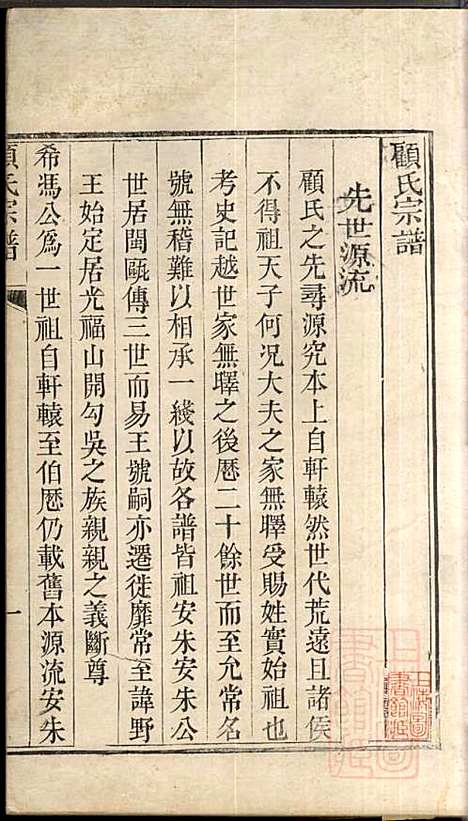 顧氏宗譜
先世源流
顧氏之先尋源究本上自軒轅然世代荒遠且諸侯
不得祖天子何況大夫之家無驛受賜姓實始祖也
考史記越世家無驛之後厯二十餘世而至允常名
號無稽難以相承一綫以故各譜皆祖安朱安朱公
世居閩甌傳三世而易王號嗣亦遷徙靡常至諱野
王始定居光福山開勾吳之族親親之義斷尊
希馮公為一世祖自軒轅至伯厯仍載舊本源流安朱
顧氏宗譜
一